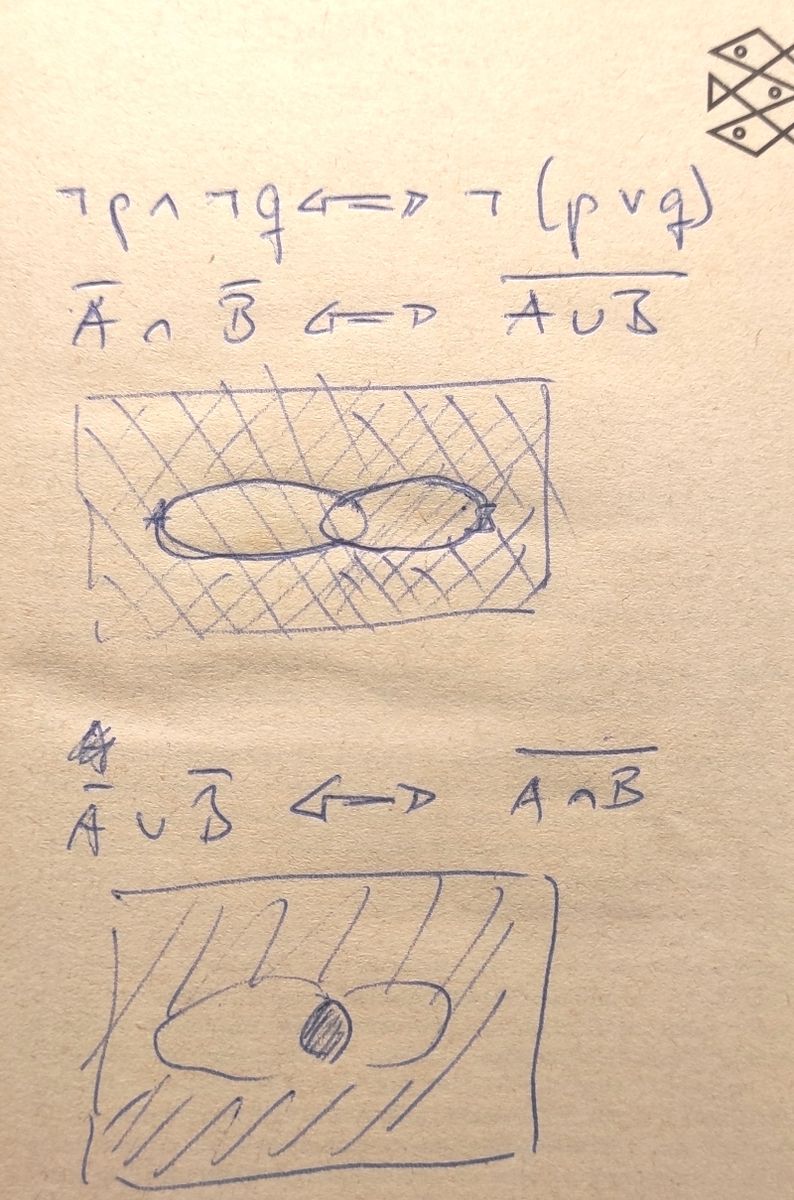 ¬p ∧ ¬q ⟺ ¬(p ∨ q)
A̅ ∩ B̅ ⟺ A̅ ̅∪̅ ̅B̅
A̅ ∪ B̅ ⟺ A̅ ̅∩̅ ̅B̅